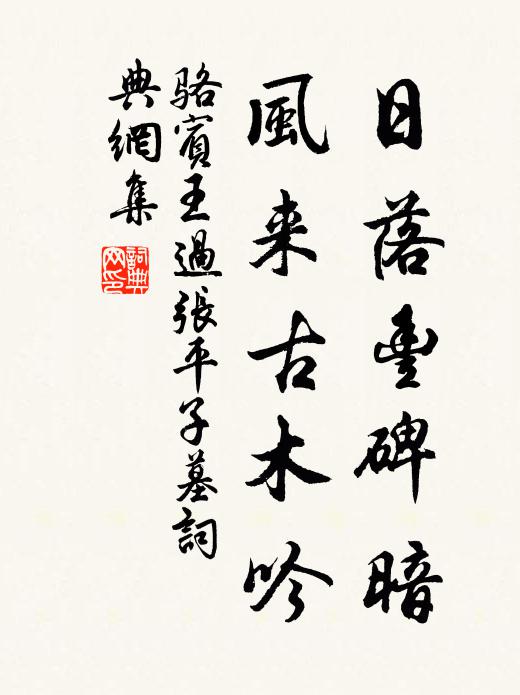 日落豊碑暗
風来古木吟
駱賓王過張平子墓詞
典網集
詞典網印